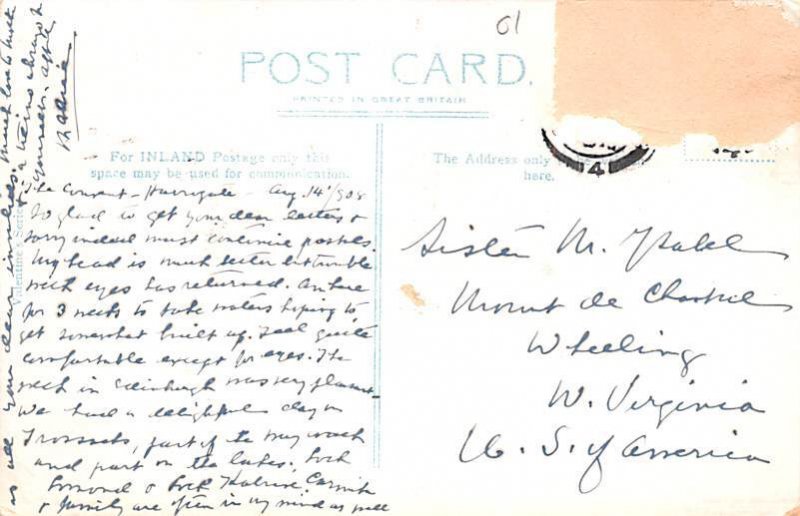 01
POST CARD.
PRINTED IN GREAT BRITAIN
For INLAND Postage only this
space may be used for communication.
The Address only
here.
Valentine's Series
4
The Convent - Harrogate - Aug. 14/908
So glad to get your dear letters &
sorry indeed must continue postals.
My head is much better but trouble
with eyes has returned. Am here
for 3 weeks to take waters hoping to
get somewhat built up. Feel quite
comfortable except for eyes. The
week in Edinburgh was very pleasant
We had a delightful day in
Trossachs, part of the way coach
and part on the lakes, Loch
Lomond & Loch Katrine.
& family are often in my mind as well
as all your dear invalids. Much love to
&
yourself.
Sister M.
Mount de Chantal
Wheeling
W. Virginia
U. S. of America